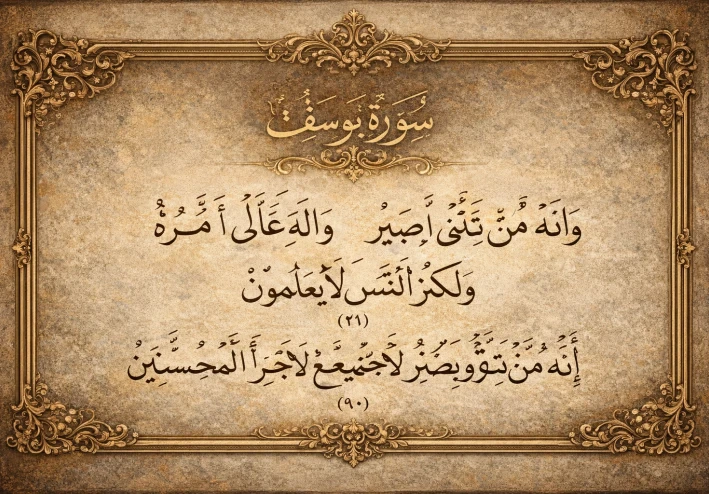 سُوَرَةٌ يَوسَفُ
وَانَهُ مُنَّ تَتُنٰى إَّصَيرُ وَالَهَ غَّالٰى أَ مَّـُرهُ
وَلَكنُز اَلنَتَسَ لَايَعَلَمونْ
(٢١)
إِنَّهُ مُنَّ تَتَّقُوبَصُنِرُ لَاجَنُميعََّعْ لَاجَرَأَ الَمحُسَّنِيَنُ
(٩٠)